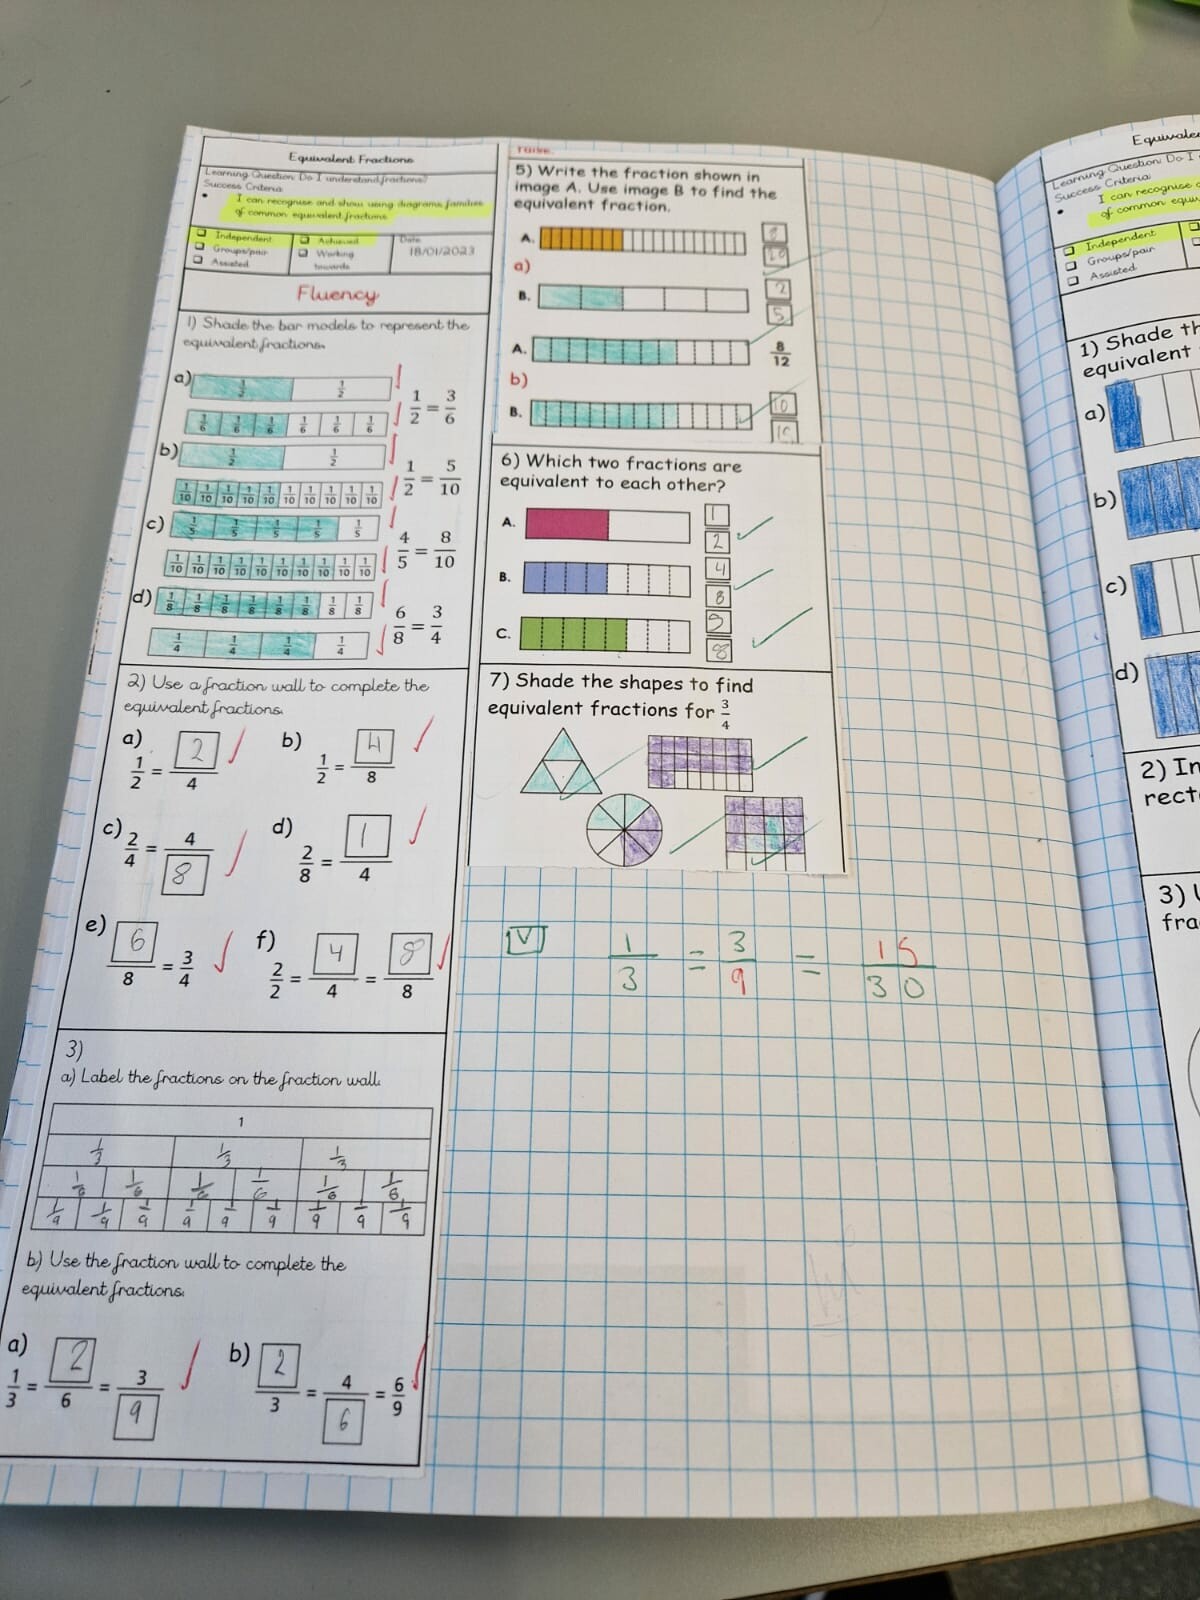 Equivalent Fractions
Learning Question: Do I understand fractions?
Success Criteria:
• I can recognise and show using diagrams, families
of common equivalent fractions
Independent
Groups/pair
Assisted
Achieved
Working
towards
Date:
18/01/2023
Fluency
1) Shade the bar models to represent the
equivalent fractions.
a) 1/2 1/2
1/6 1/6 1/6 1/6 1/6 1/6
1/2 = 3/6
b) 1/2 1/2
1/10 1/10 1/10 1/10 1/10 1/10 1/10 1/10 1/10
1/2 = 5/10
c) 1/5 1/5 1/5 1/5 1/5
1/10 1/10 1/10 1/10 1/10 1/10 1/10 1/10 1/10 1/10
4/5 = 8/10
d) 1/8 1/8 1/8 1/8 1/8 1/8 1/8 1/8
1/4 1/4 1/4 1/4
6/8 = 3/4
2) Use a fraction wall to complete the
equivalent fractions.
a) 1/2 = 2/4
b) 1/2 = 4/8
c) 2/4 = 4/8
d) 2/8 = 1/4
e) 6/8 = 3/4
f) 2/2 = 4/4 = 8/8
3)
a) Label the fractions on the fraction wall.
1
1/3 1/3 1/3
1/6 1/6 1/6 1/6 1/6 1/6
1/9 1/9 1/9 1/9 1/9 1/9 1/9 1/9 1/9
b) Use the fraction wall to complete the
equivalent fractions.
a) 1/3 = 2/6 = 3/9
b) 2/3 = 4/6 = 6/9
5) Write the fraction shown in
image A. Use image B to find the
equivalent fraction.
A.
a)
B. 2/5
A. 8/12
b)
B.
6) Which two fractions are
equivalent to each other?
A. 1/2
B. 4/8
C. 5/8
7) Shade the shapes to find
equivalent fractions for 3/4
V 1/3 = 3/9 = 15/30
Learning Question: Do I
Success Criteria:
• I can recognise
of common
Independent
Groups/pair
Assisted
1) Shade
equivalent
a)
b)
c)
d)
2)
3)